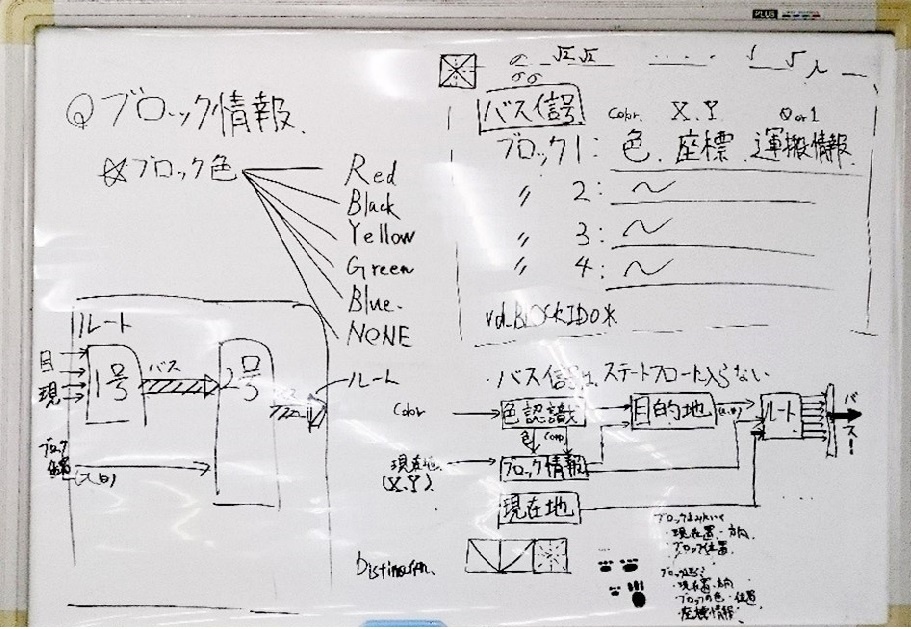 PLUS
ブロック情報.
ブロック色
Red
Black
Yellow
Green
Blue.
NONE
ルート
目
現
1号
バス
2号
ルート
ブロック
バス信号
Color.
X.Y
0 or 1
ブロック1: 色. 座標. 運搬情報.
〃 2: 〜
〃 3: 〜
〃 4: 〜
・バス信号は ステートフローに入らない
Color
色認識
目的地
ルート
バス
色
現在地.
(X.Y).
ブロック情報
現在地
・現在置・方向
・ブロック位置.
・ブロックの色・位置
・座標情報